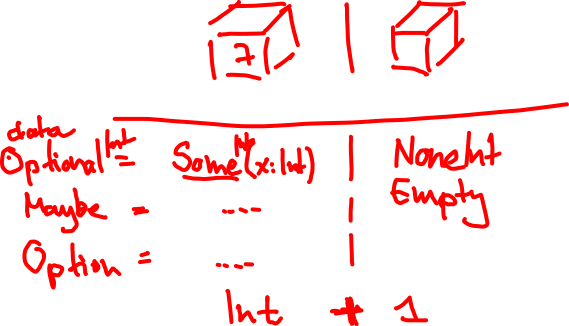 7 |
data
OptionalInt = SomeInt(x:Int) | NoneInt
Maybe = .... | Empty
Option = .... |
Int + 1